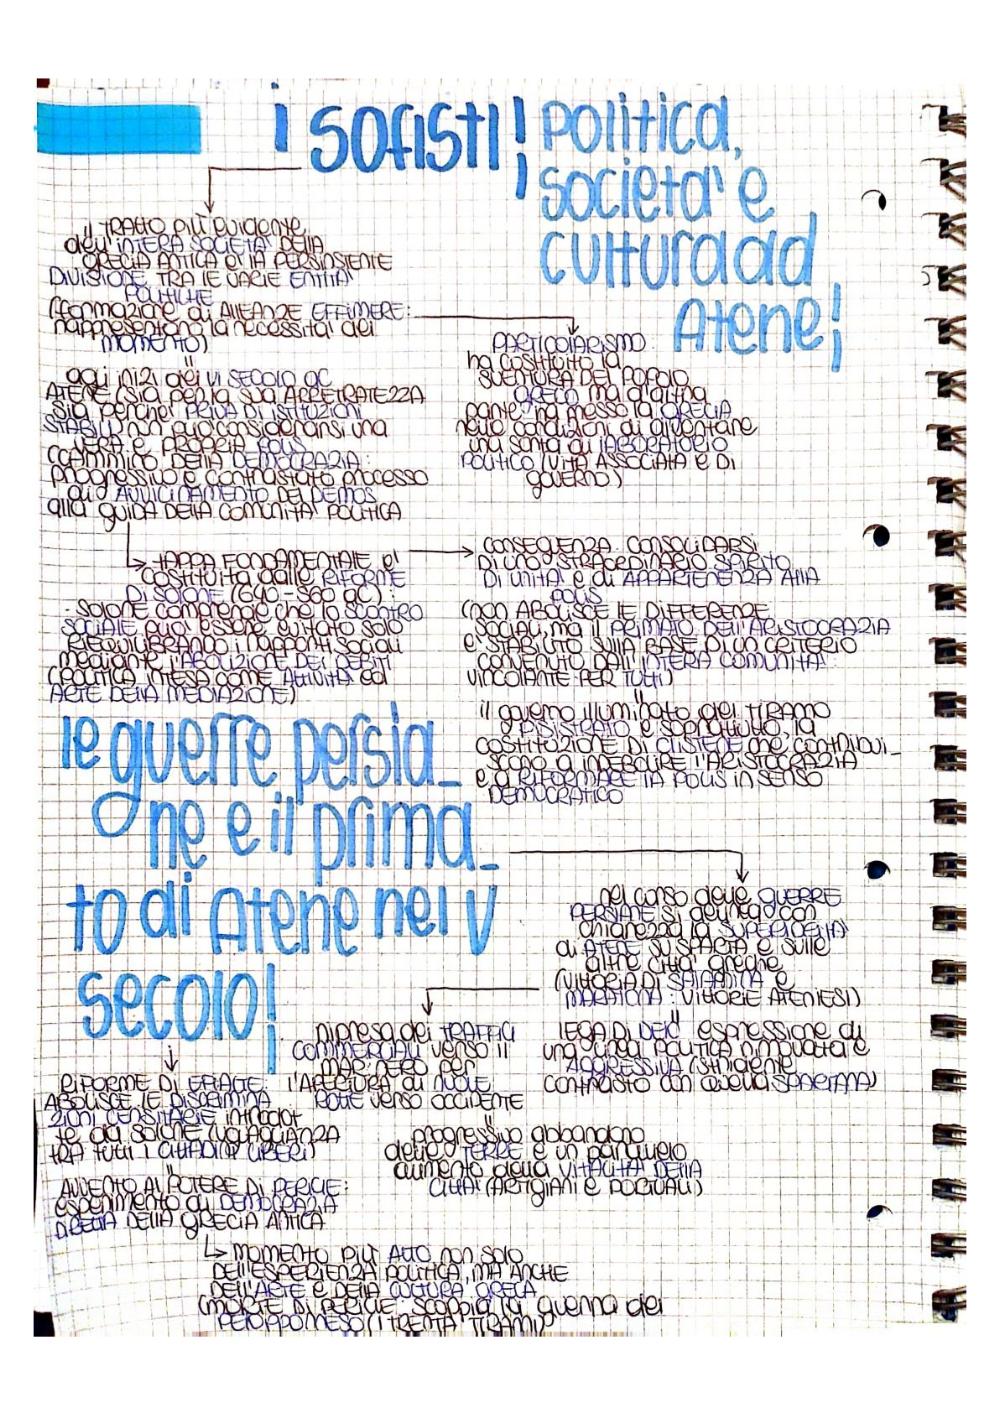 i SOFISTI!
politica,
societa' e
cultura ad
Atene!
il TRATTO più evidente
dell'INTERA SOCIETA' DELLA
GRECIA ANTICA e' la PERSINSIENTE
DIVISIONE TRA LE VARIE ENTITA'
POLITICHE
(formazione di ALLEANZE EFFIMERE:
rappresentano la necessita' del
MOMENTO)
PARTICOLARISMO:
ha costituito la
SVENTURA DEL POPOLO
GRECO ma d'altra
parte, ha messo la GRECIA
nelle condizioni di diventare
una sorta di LABORATORIO
POLITICO (VITA ASSOCIATA E DI
governo)
agli inizi del VI SECOLO aC
ATENE (sia per la sua ARRETRATEZZA
sia perche' PRIVA DI ISTITUZIONI
STABILI) non può considerarsi una
VERA E PROPRIA POLIS
CCAMMINO DELLA DEMOCRAZIA:
progressivo e contrastato processo
di AVVICINAMENTO DEL DEMOS
alla guida DELLA COMUNITA' POLITICA
TAPPA FONDAMENTALE e'
costituita dalle RIFORME
DI SOLONE (640-560 aC):
- SOLONE comprende che lo SCONTRO
SOCIALE puo' essere evitato solo
RIEQUILIBRANDO i rapporti sociali
mediante l'ABOLIZIONE DEI DEBITI
(POLITICA INTESA COME ATTIVITA' ed
ARTE DELLA MEDIAZIONE)
CONSEGUENZA: CONSOLIDARSI
DI UNO STRAORDINARIO SPIRITO
DI UNITA' e di APPARTENENZA ALLA
POLIS
(NON ABOLISCE LE DIFFERENZE
SOCIALI, ma il PRIMATO DELL'ARISTOCRAZIA
e' STABILITO SULLA BASE DI UN CRITERIO
CONVENUTO DALL'INTERA COMUNITA':
VINCOLANTE PER TUTTI)
il governo illuminato del TIRANNO
PISISTRATO e soprattutto, la
COSTITUZIONE DI CLISTENE che contribui_
scono a INDEBOLIRE l'ARISTOCRAZIA
e a RIFORMARE LA POLIS IN SENSO
DEMOCRATICO
le guerre persia_
ne e il prima_
to di Atene nel V
secolo!
nel corso delle GUERRE
PERSIANE si delinea con
chiarezza la SUPERIORITA'
di ATENE SU SPARTA e sulle
altre città greche
(VITTORIA DI SALAMINA e
MARATONA: VITTORIE ATENIESI)
LEGA DI DELO: espressione di
una linea politica rinnovata e
AGGRESSIVA (stridente
contrasto con quella SPARTANA)
ripresa dei TRAFFICI
COMMERCIALI verso il
MAR NERO per
l'APERTURA di NUOVE
ROTE verso OCCIDENTE
progressivo abbandono
delle TERRE e un parallelo
aumento della VITALITA' DELLA
CITTA' (ARTIGIANI E PORTUALI)
RIFORME DI EFIALTE:
ABOLISCE LE DISCRIMINA
ZIONI CENSITARIE introdot
te da SOLONE (UGUAGLIANZA
TRA TUTTI I CITTADINI LIBERI)
AVVENTO AL POTERE DI PERICLE:
esperimento di DEMOCRAZIA
DIRETTA DELLA GRECIA ANTICA
MOMENTO PIU' ALTO non solo
DELL'ESPERIENZA POLITICA, MA ANCHE
DELL'ARTE E DELLA CULTURA GRECA
(MORTE DI PERICLE: SCOPPIA la guerra del
PELOPPONESO (I TRENTA TIRANNI)